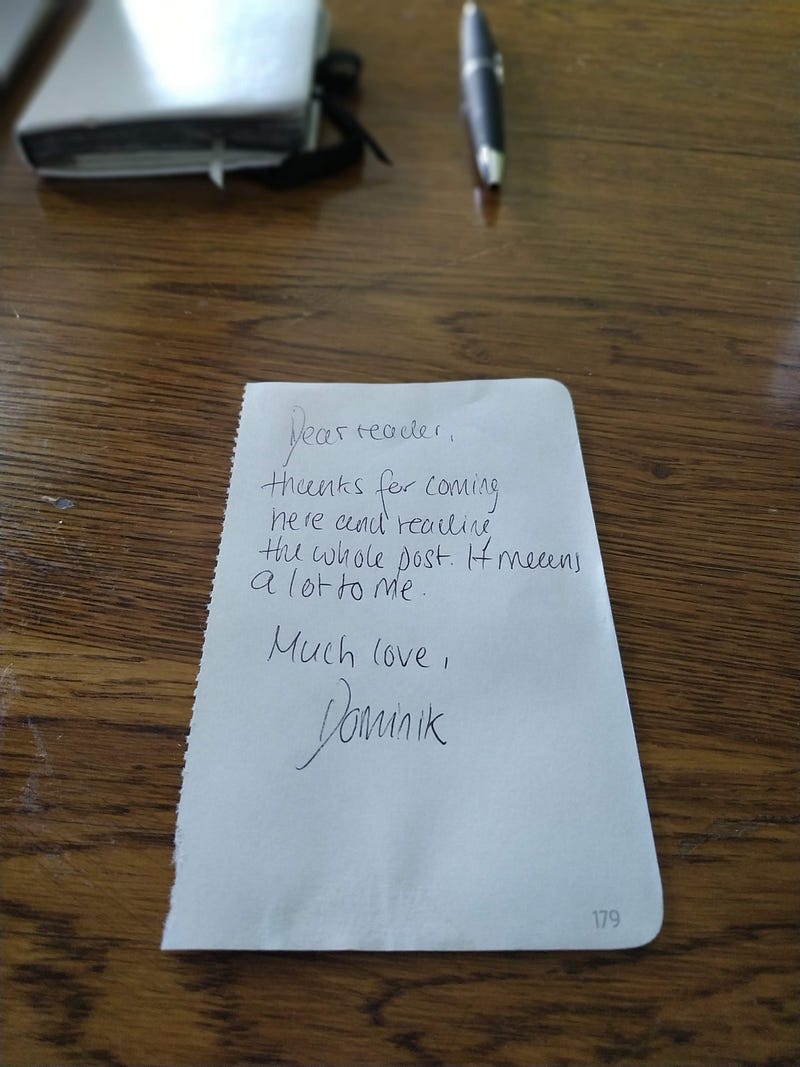 Dear reader,
thanks for coming
here and reading
the whole post. It means
a lot to me.
Much love,
Dominik
179